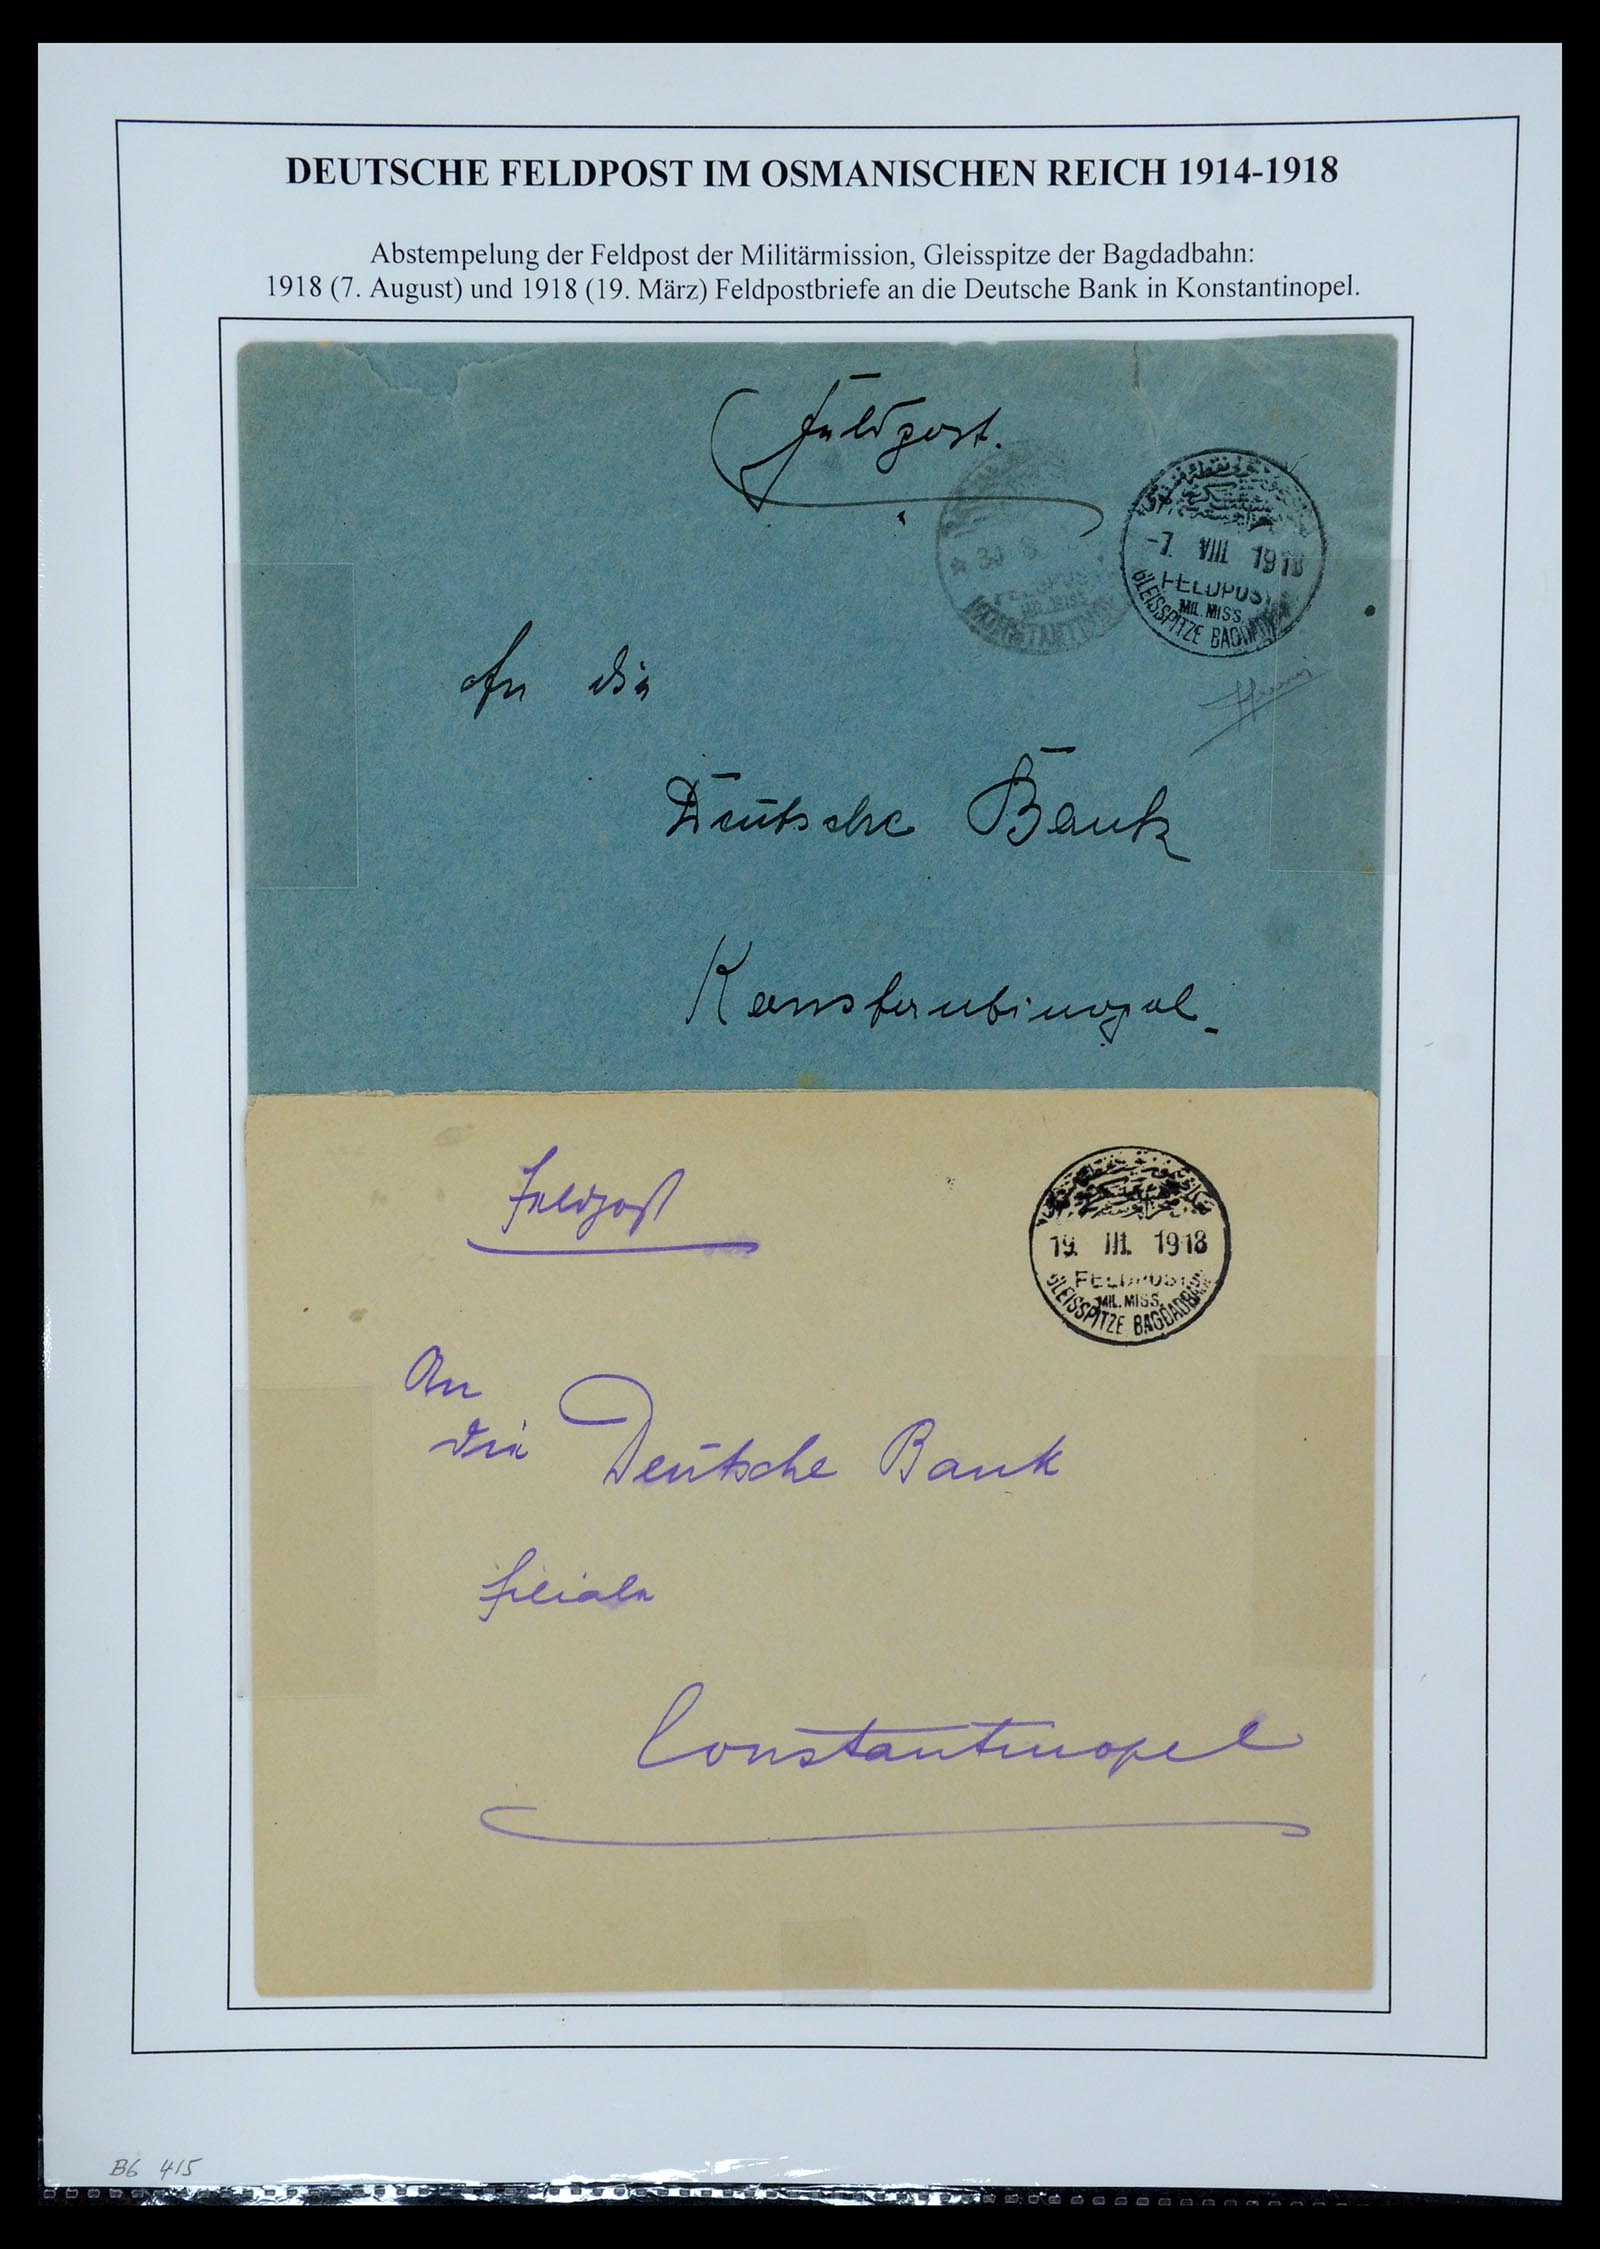 DEUTSCHE FELDPOST IM OSMANISCHEN REICH 1914-1918
Abstempelung der Feldpost der Militärmission, Gleisspitze der Bagdadbahn:
1918 (7. August) und 1918 (19. März) Feldpostbriefe an die Deutsche Bank in Konstantinopel.
Feldpost.
-7. VIII. 1918
FELDPOST
MIL. MISS.
GLEISSPITZE BAGDADBAHN
* 30 8
FELDPOST
MIL. MISS.
KONSTANTINOPEL
An die
Deutsche Bank
Konstantinopel
Feldpost
19. III. 1918
FELDPOST
MIL. MISS.
GLEISSPITZE BAGDADBAHN
An
die Deutsche Bank
Filiale
Constantinopel
B6 415